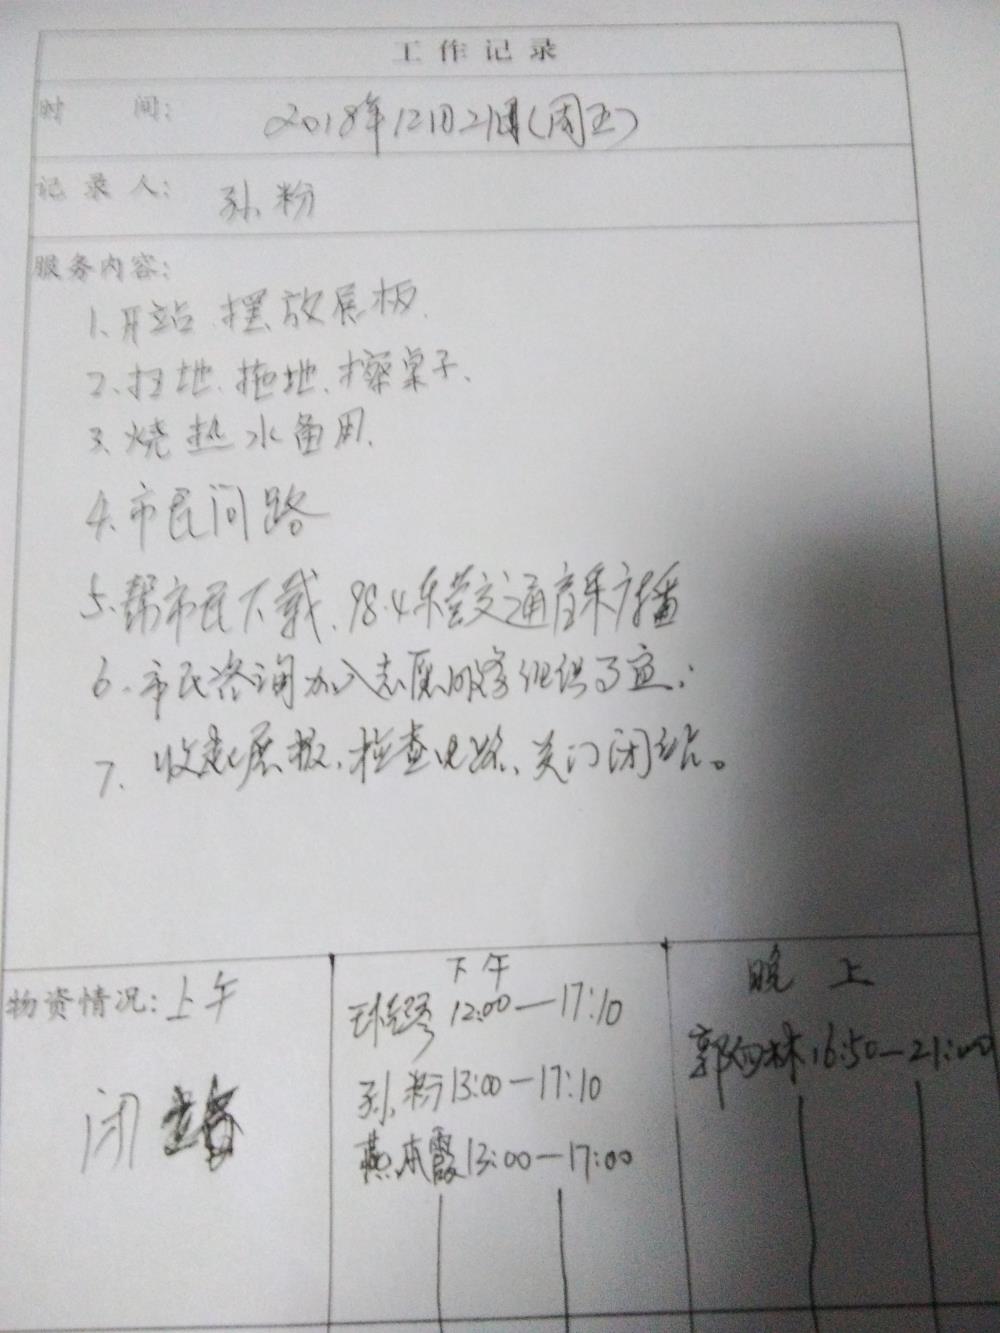 工作记录
时 间: 2018年12月21日(周五)
记录人: 孙粉
服务内容:
1、开站、摆放展板.
2、扫地、拖地、擦桌子.
3、烧热水备用.
4、市民问路
5、帮市民下载、98.4东营交通音乐广播
6、市民咨询加入志愿服务组织事宜;
7、收起展板、检查电路、关门闭站。
物资情况: 上午
闭站
下午
12:00—17:10
孙粉13:00—17:10
燕本霞13:00—17:00
晚上
郭向林16:50—21:00